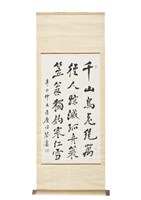 千山鳥飛絕萬
徑人踪滅孤舟蓑
笠翁獨釣寒江雪